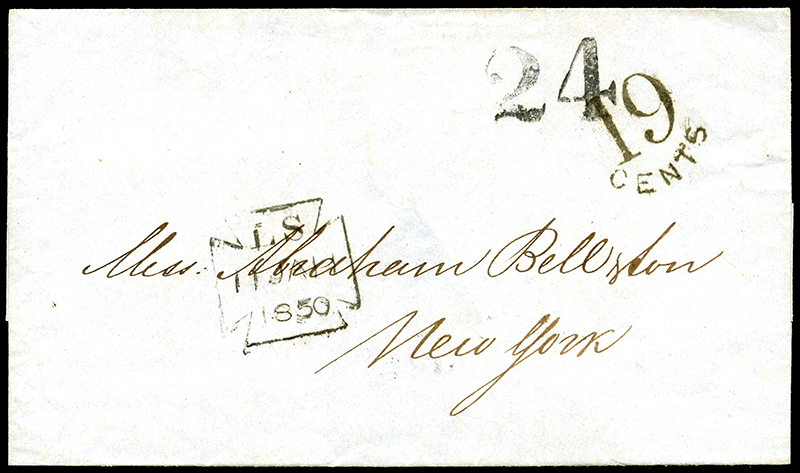 24
19
CENTS
LS
Mess. Abraham Bell & Son
11
1850
New York